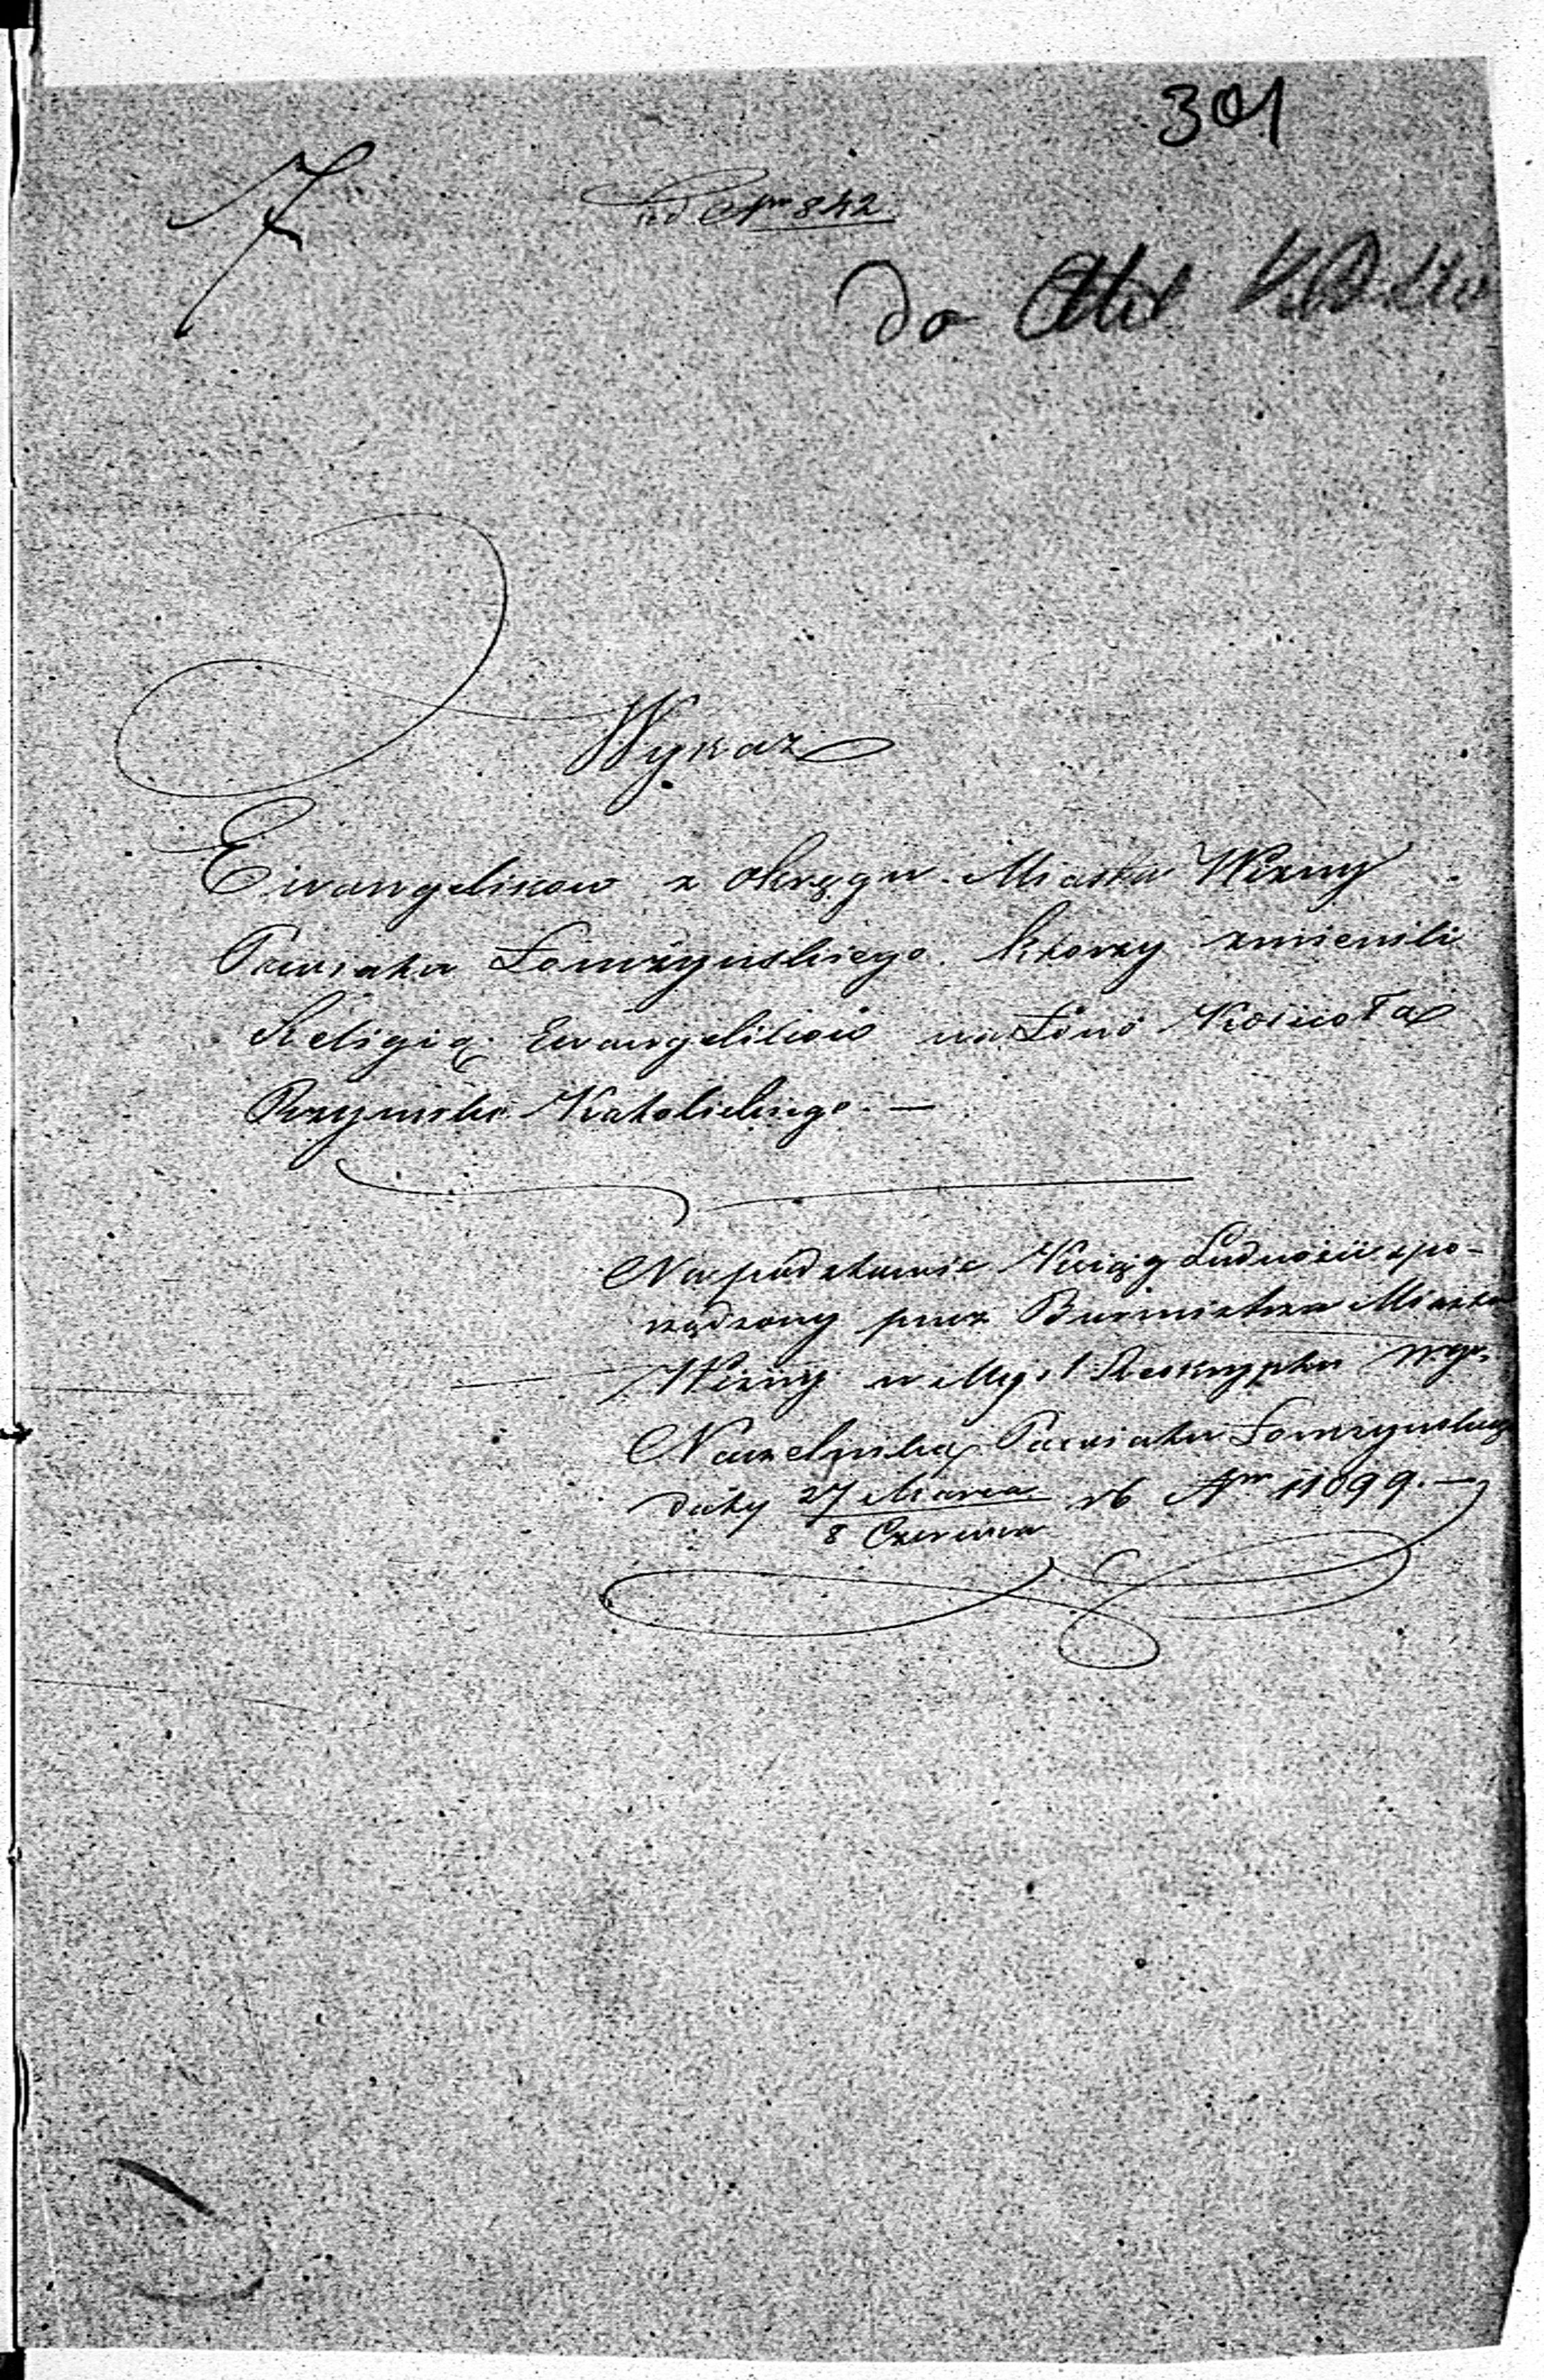 301
7
ad Nro 842
do Akt
Wykaz
Ewangelikow z okręgu Miasta Wizny
Powiatu Łomżynskiego. ktorzy zmienili
Religią Ewangelikow na Łono Koscioła
Rzymsko Katolickiego. —
Na podstawie Ksiąg Ludnosci spo-
rządzony przez Burmistrza Miasta
Wizny w Mysl Reskryptu Wgo.
Naczelnika Powiatu Łomzynskiego
daty 27 Marca / 8 Czerwca rb Nro 11099. —